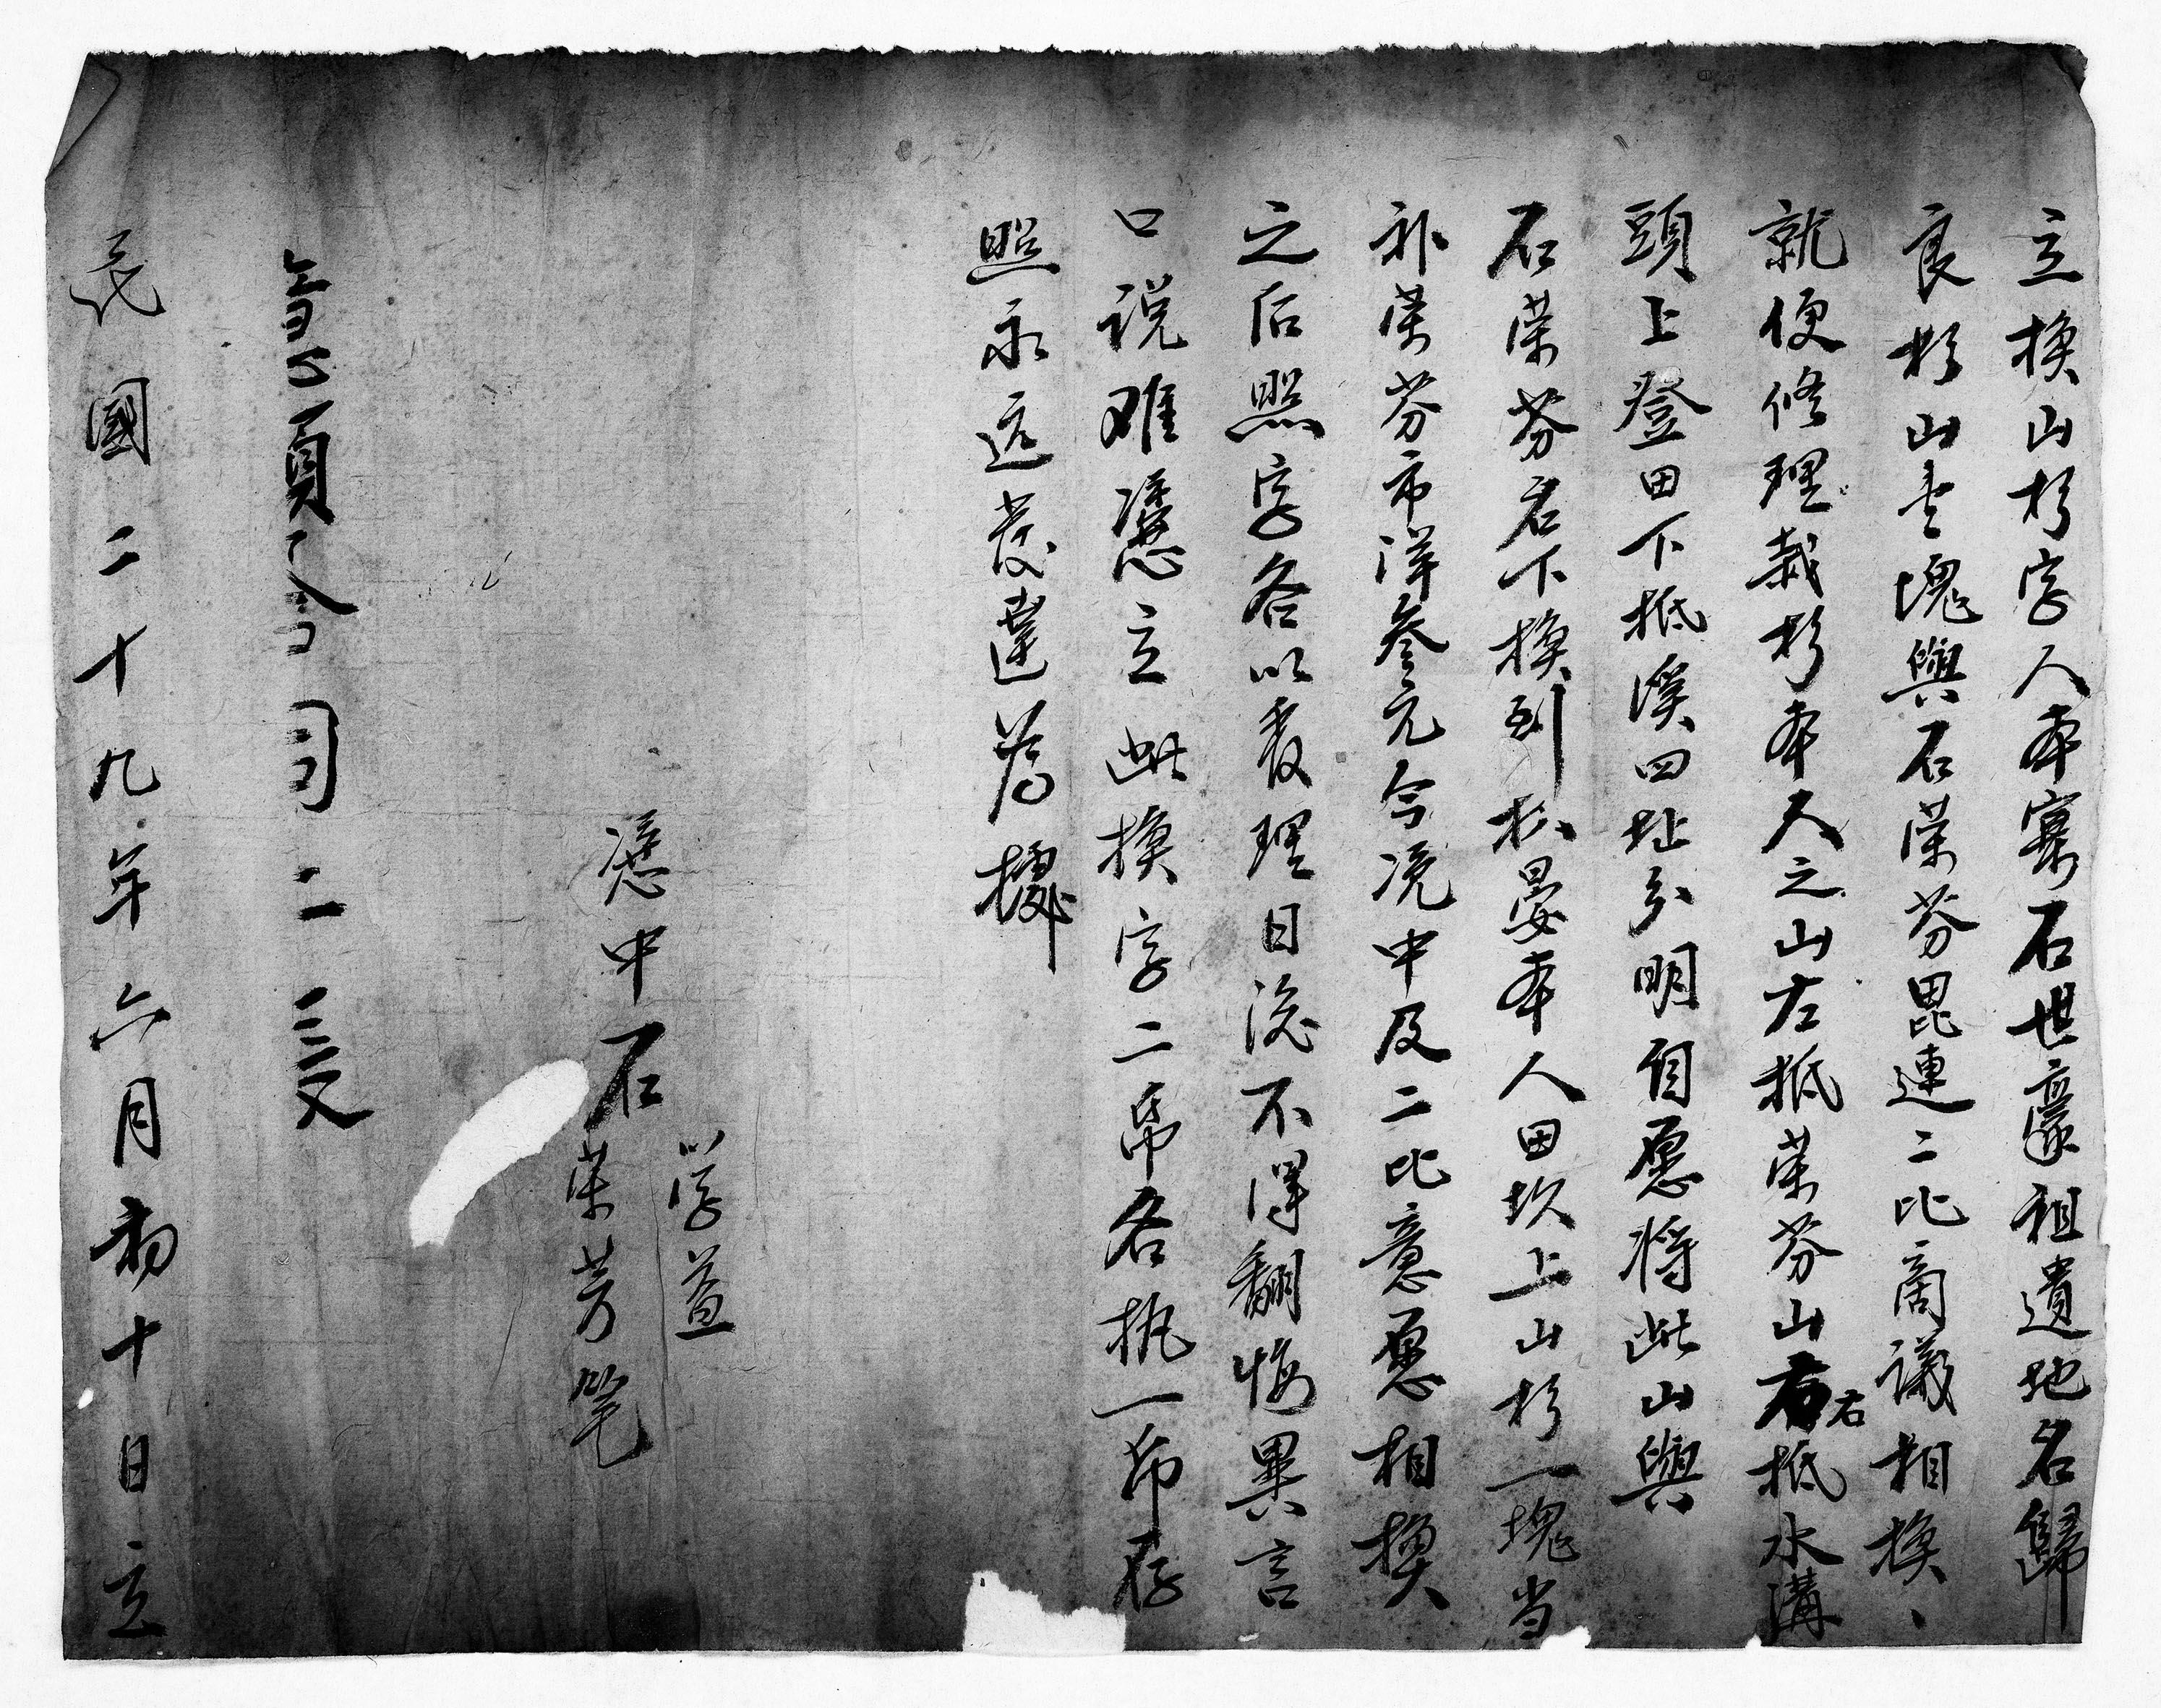 立換山杉字人本寨石世豪祖遺地名歸
良杉山壹塊與石荣芬毘連二比商議相換、
就便修理栽杉本人之山左抵荣芬山右抵水溝
頭上登田下抵溪四址分明自愿將此山與
石荣芬名下換到 晏本人田坎上山杉一塊当
补荣芬市洋叁元今凭中及二比意愿相換
之后照字各以  理日後不得翻悔異言
口说难憑立此換字二帋各执一帋存
照永远發達為據
憑中石
学益
荣芳筆
合同二
民國二十九年六月初十日立